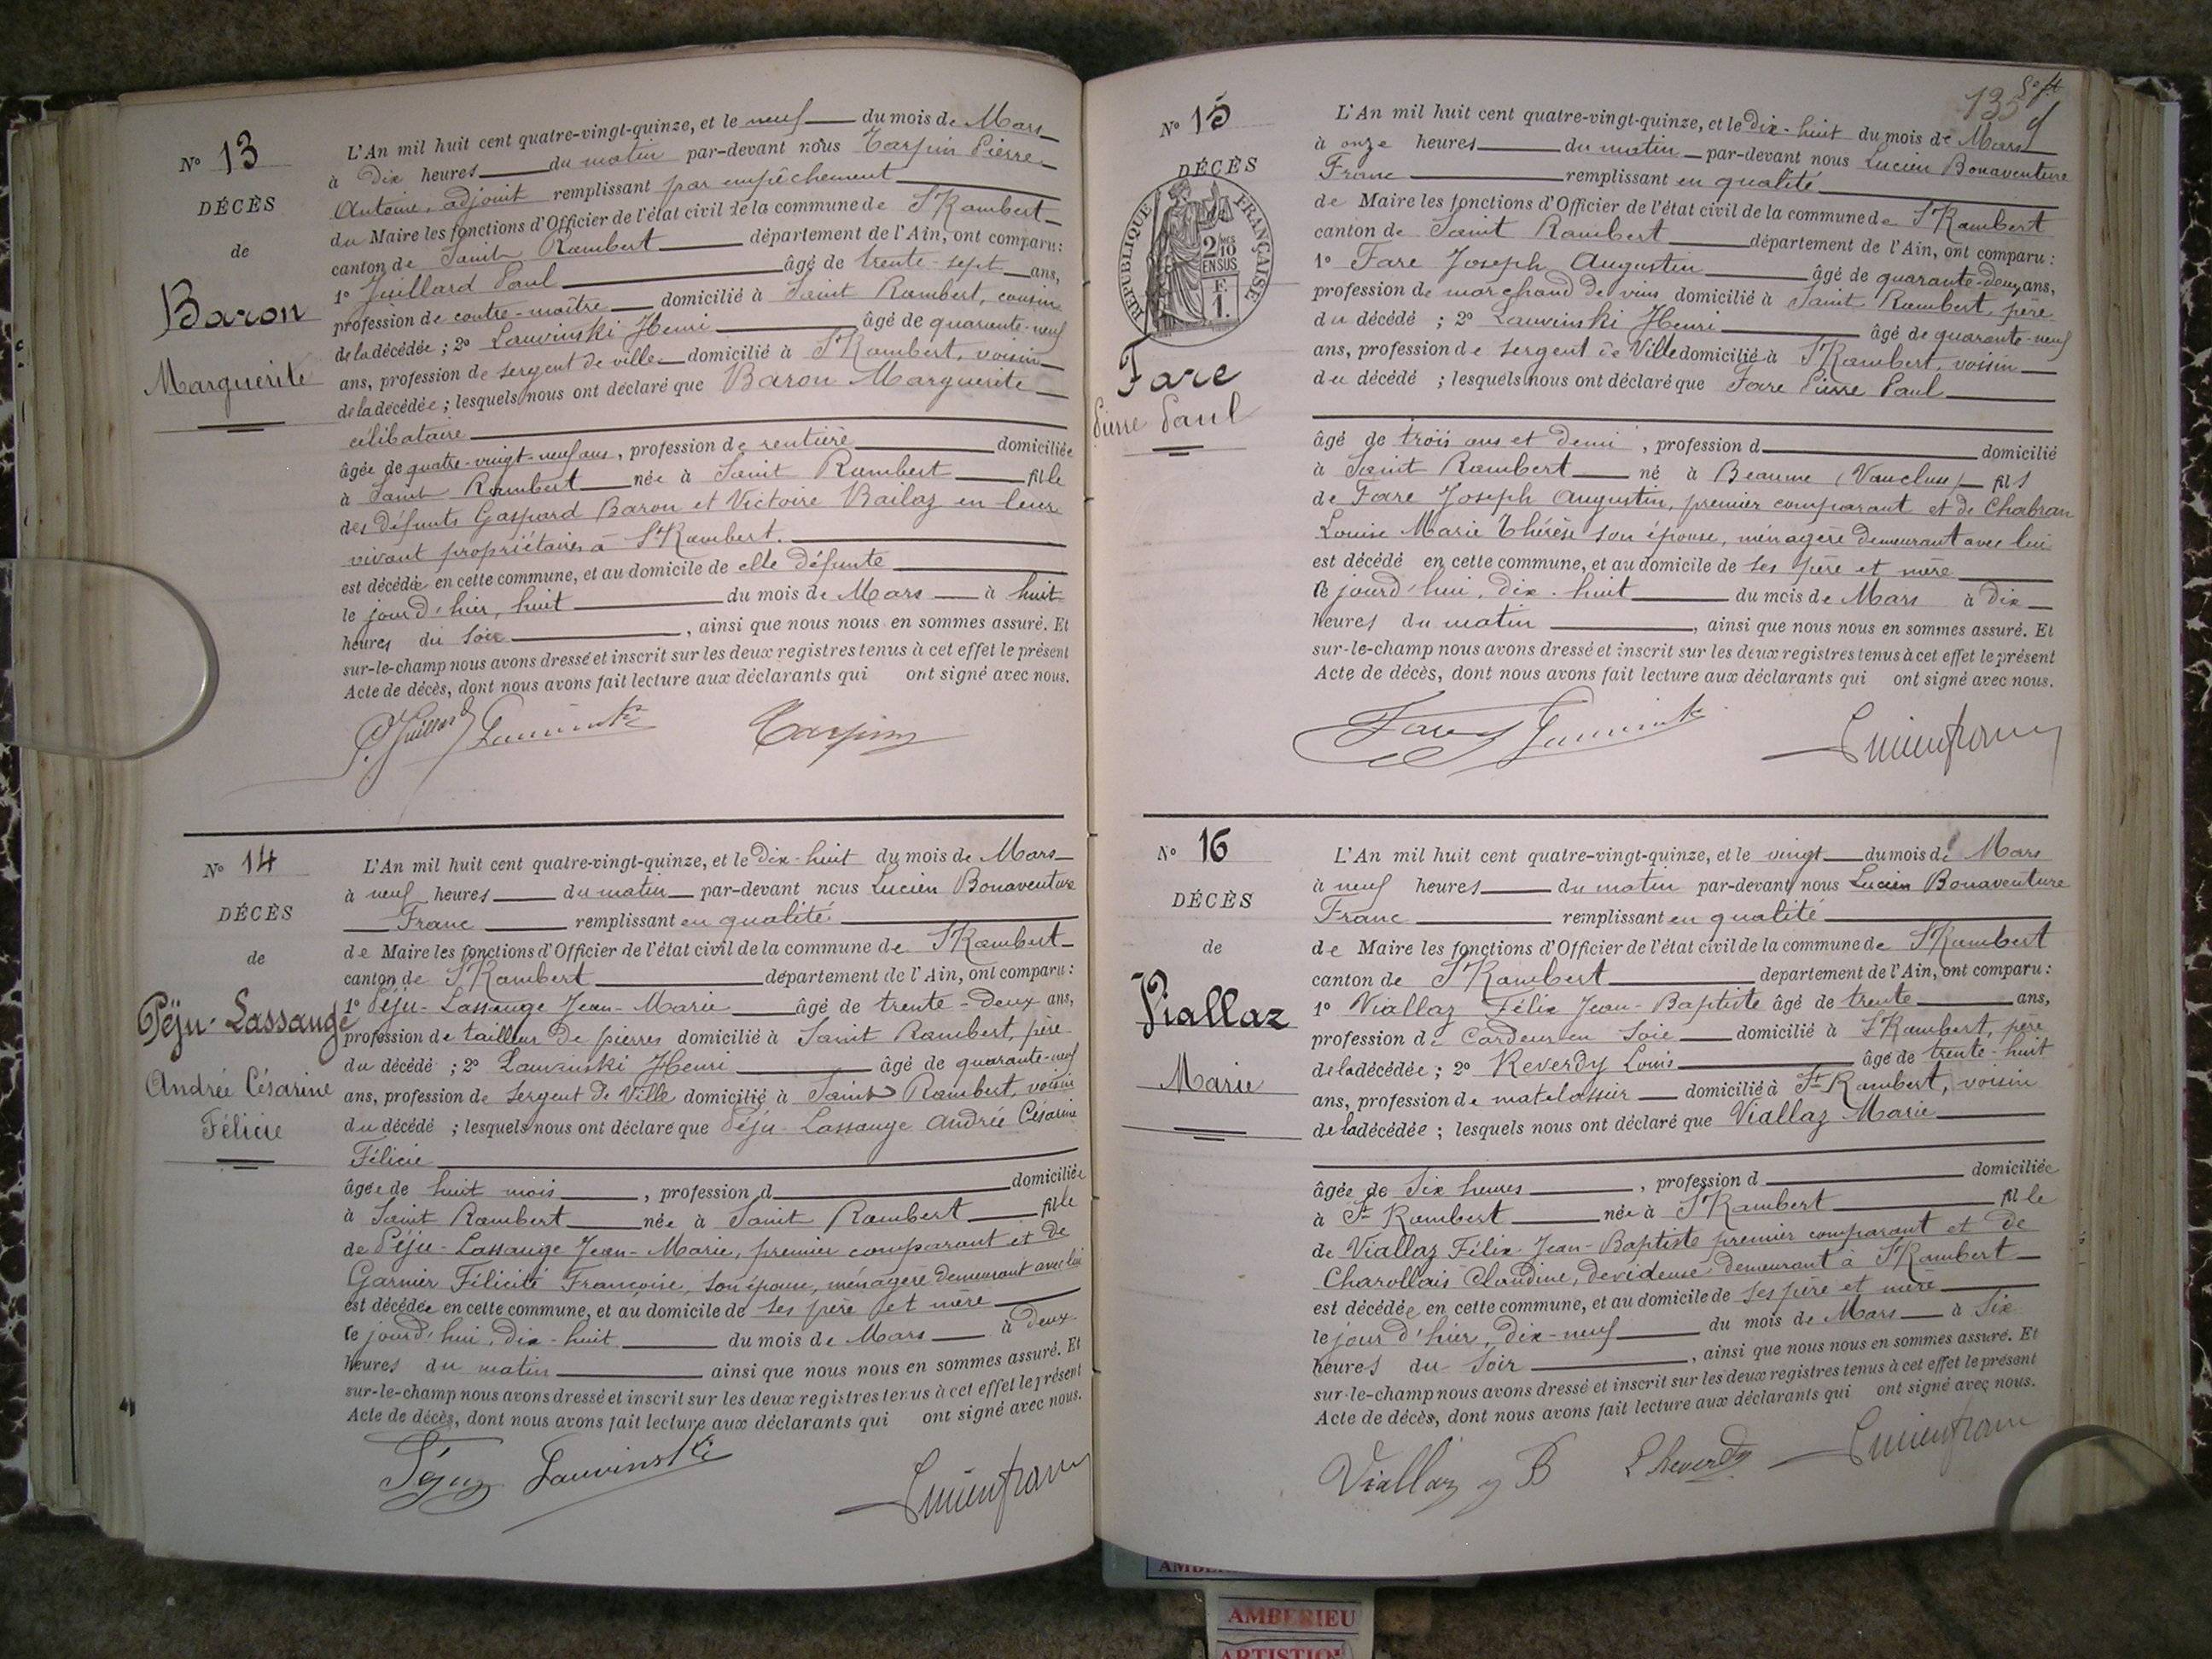 Nº 13
DÉCÈS
de
Baron
Marguerite
L'An mil huit cent quatre-vingt-quinze, et le neuf du mois de Mars
à dix heures du matin par-devant nous Tarpin Pierre
Antoine, adjoint remplissant par empêchement
du Maire les fonctions d'Officier de l'état civil de la commune de St Rambert
canton de Saint Rambert département de l'Ain, ont comparu :
1º Juillard Paul âgé de trente-sept ans,
profession de contre-maître domicilié à Saint Rambert, cousin
de la décédée ; 2º Lauvinski Henri âgé de quarante-neuf
ans, profession de sergent de ville domicilié à St Rambert, voisin
de la décédée ; lesquels nous ont déclaré que Baron Marguerite
célibataire
âgée de quatre-vingt-neuf ans, profession de rentière domiciliée
à Saint Rambert née à Saint Rambert fille
des défunts Gaspard Baron et Victoire Bailaz en leur
vivant propriétaires à St Rambert.
est décédée en cette commune, et au domicile de elle défunte
le jour d'hier, huit du mois de Mars à huit
heures du soir, ainsi que nous nous en sommes assuré. Et
sur-le-champ nous avons dressé et inscrit sur les deux registres tenus à cet effet le présent
Acte de décès, dont nous avons fait lecture aux déclarants qui ont signé avec nous.
P. Juillard Lauvinski Tarpin
Nº 14
DÉCÈS
de
Péju-Lassauge
Andrée Césarine
Félicie
L'An mil huit cent quatre-vingt-quinze, et le dix-huit du mois de Mars
à neuf heures du matin par-devant nous Lucien Bonaventure
Franc remplissant en qualité
de Maire les fonctions d'Officier de l'état civil de la commune de St Rambert
canton de St Rambert département de l'Ain, ont comparu :
1º Péju-Lassauge Jean-Marie âgé de trente-deux ans,
profession de tailleur de pierres domicilié à Saint Rambert, père
du décédé ; 2º Lauvinski Henri âgé de quarante-neuf
ans, profession de sergent de Ville domicilié à Saint Rambert, voisin
du décédé ; lesquels nous ont déclaré que Péju-Lassauge Andrée Césarine
Félicie
âgée de huit mois, profession d domiciliée
à Saint Rambert née à Saint Rambert fille
de Péju-Lassauge Jean-Marie, premier comparant et de
Garnier Félicité Françoise, son épouse, ménagère demeurant avec lui
est décédée en cette commune, et au domicile de ses père et mère
le jourd'hui, dix-huit du mois de Mars à deux
heures du matin ainsi que nous nous en sommes assuré. Et
sur-le-champ nous avons dressé et inscrit sur les deux registres tenus à cet effet le présent
Acte de décès, dont nous avons fait lecture aux déclarants qui ont signé avec nous.
Péju Lauvinski Lucien Franc
135
Nº 15
DÉCÈS
RÉPUBLIQUE FRANÇAISE
2/10 EN SUS
F. 1.
Fare
Pierre Paul
L'An mil huit cent quatre-vingt-quinze, et le dix-huit du mois de Mars
à onze heures du matin par-devant nous Lucien Bonaventure
Franc remplissant en qualité
de Maire les fonctions d'Officier de l'état civil de la commune de St Rambert
canton de Saint Rambert département de l'Ain, ont comparu :
1º Fare Joseph Augustin âgé de quarante-deux ans,
profession de marchand de vins domicilié à Saint Rambert, père
du décédé ; 2º Lauvinski Henri âgé de quarante-neuf
ans, profession de sergent de Ville domicilié à St Rambert, voisin
du décédé ; lesquels nous ont déclaré que Fare Pierre Paul
âgé de trois ans et demi, profession d domicilié
à Saint Rambert né à Beaume (Vaucluse) fils
de Fare Joseph Augustin, premier comparant et de Chabran
Louise Marie Thérèse son épouse, ménagère demeurant avec lui
est décédé en cette commune, et au domicile de ses père et mère
le jourd'hui, dix-huit du mois de Mars à dix
heures du matin, ainsi que nous nous en sommes assuré. Et
sur-le-champ nous avons dressé et inscrit sur les deux registres tenus à cet effet le présent
Acte de décès, dont nous avons fait lecture aux déclarants qui ont signé avec nous.
Fare Lauvinski Lucien Franc
Nº 16
DÉCÈS
de
Viallaz
Marie
L'An mil huit cent quatre-vingt-quinze, et le vingt du mois de Mars
à neuf heures du matin par-devant nous Lucien Bonaventure
Franc remplissant en qualité
de Maire les fonctions d'Officier de l'état civil de la commune de St Rambert
canton de St Rambert département de l'Ain, ont comparu :
1º Viallaz Félix Jean-Baptiste âgé de trente ans,
profession de cardeur en soie domicilié à St Rambert, père
de la décédée ; 2º Reverdy Louis âgé de trente-huit
ans, profession de matelassier domicilié à St Rambert, voisin
de la décédée ; lesquels nous ont déclaré que Viallaz Marie
âgée de six heures, profession d domiciliée
à St Rambert née à St Rambert fille
de Viallaz Félix Jean-Baptiste premier comparant et de
Charollais Claudine, devideuse demeurant à St Rambert
est décédée en cette commune, et au domicile de ses père et mère
le jour d'hier, dix-neuf du mois de Mars à six
heures du soir, ainsi que nous nous en sommes assuré. Et
sur-le-champ nous avons dressé et inscrit sur les deux registres tenus à cet effet le présent
Acte de décès, dont nous avons fait lecture aux déclarants qui ont signé avec nous.
Viallaz J B L Reverdy Lucien Franc
AMBERIEU